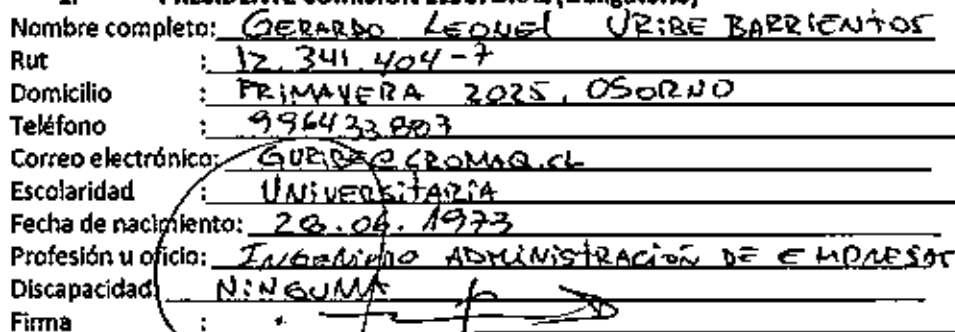 Nombre completo: GERARDO LEONEL URIBE BARRIENTOS
Rut : 12.341.404-7
Domicilio : PRIMAVERA 2025, OSORNO
Teléfono : 996433887
Correo electrónico: GURIBE@CROMAQ.CL
Escolaridad : UNIVERSITARIA
Fecha de nacimiento: 28.06.1973
Profesión u oficio: INGENIERO ADMINISTRACIÓN DE EMPRESAS
Discapacidad: NINGUNA
Firma :